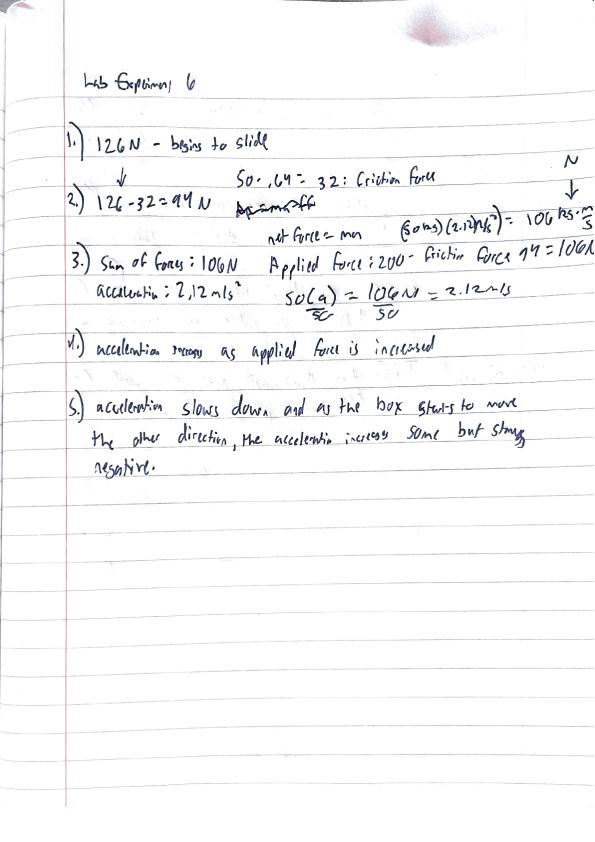 Lab Experiment 6
1.) 126N - begins to slide
↓
50 · .64 = 32 : friction force
N
↓
2.) 126 - 32 = 94 N
net force = ma (50 kg)(2.12m/s²) = 106 kg·m/s
3.) Sum of forces : 106N Applied Force : 200 - friction force 94 = 106N
acceleration : 2.12 m/s² 50(a)/50 = 106N/50 = 2.12 m/s
4.) acceleration increases as applied force is increased
5.) acceleration slows down and as the box starts to move
the other direction, the acceleration increases some but stays
negative.